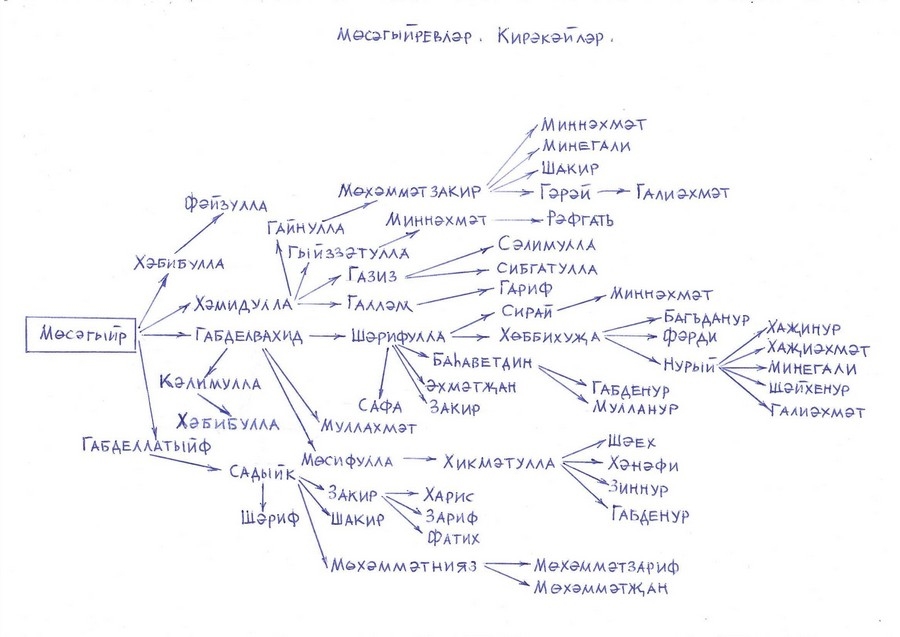 Мөсәгыйревләр. Кирәкәйләр.
Миннәхмәт
Минегали
Шакир
Мөхәммәтзакир Гәрәй Галиәхмәт
Фәйзулла
Гайнулла Миннәхмәт Рәфгать
Гыйззәтулла Сәлимулла
Хәбибулла Газиз Сибгатулла
Хәмидулла Галләм Гариф
Сирай Миннәхмәт
Мөсәгыйр Габделвахид Шәрифулла Хөббихуҗа Багъданур
Фәрди
Нурый Хаҗинур
Хаҗиәхмәт
Минегали
Шәйхенур
Галиәхмәт
Баһаветдин
Кәлимулла Әхмәтҗан Габденур
Сафа Закир Мулланур
Хәбибулла Муллахмәт
Габделлатыйф
Мөсифулла Хикмәтулла Шәех
Хәнәфи
Зиннур
Габденур
Садыйк
Закир Харис
Шәриф Шакир Зариф
Фатих
Мөхәммәтнияз Мөхәммәтзариф
Мөхәммәтҗан